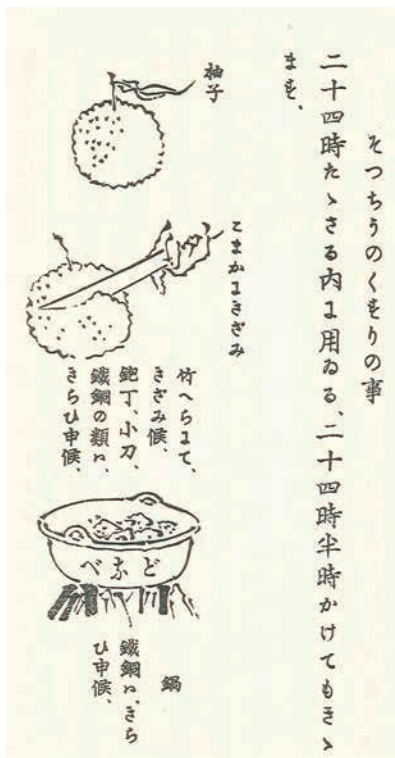 そつちうのくすりの事
二十四時たゝさる内に用ゐる、二十四時半時かけてもきゝ
ます、
柚子
こまかにきざみ
竹へらにて、
きざみ候、
鉋丁、小刀、
鐵銅の類ハ、
きらひ申候、
どなべ
鍋
鐵銅ハ、きら
ひ申候、